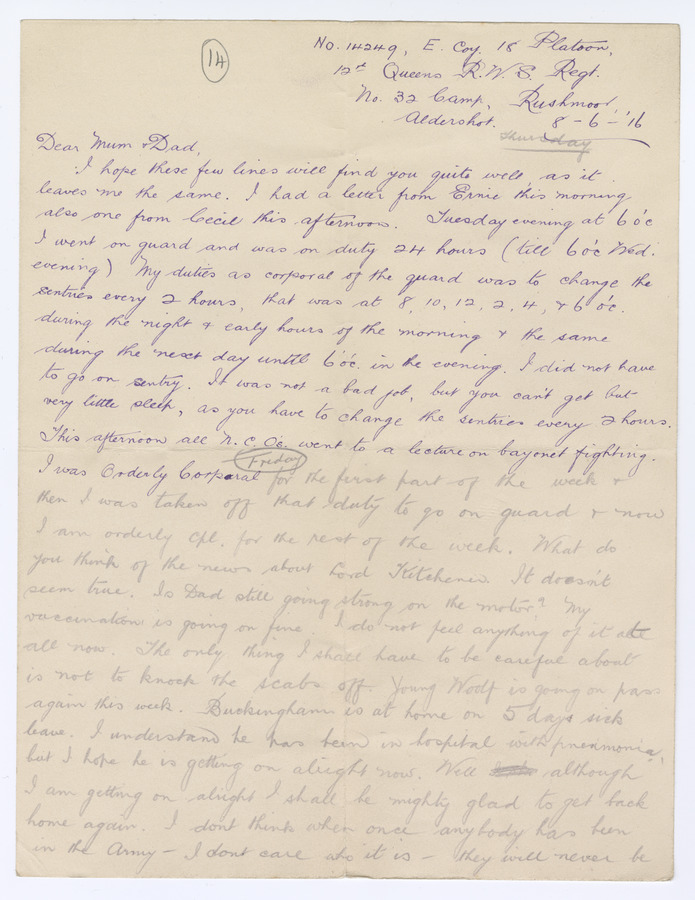 14
No. 14249, E. Coy. 18 Platoon,
12th Queens R.W.S. Regt.
No. 32 Camp, Rushmoor,
Aldershot. 8-6-'16
Thursday
Dear Mum & Dad,
I hope these few lines will find you quite well, as it
leaves me the same. I had a letter from Ernie this morning
also one from Cecil this afternoon. Tuesday evening at 6 o'c
I went on guard and was on duty 24 hours (till 6 o'c Wed.
evening) My duties as corporal of the guard was to change the
sentries every 2 hours, that was at 8, 10, 12, 2, 4, & 6 o'c.
during the night & early hours of the morning & the same
during the next day until 6 o'c. in the evening. I did not have
to go on sentry. It was not a bad job, but you can't get but
very little sleep, as you have to change the sentries every 2 hours.
This afternoon all N.C.O's. went to a lecture on bayonet fighting.
Friday
I was Orderly Corporal for the first part of the week &
then I was taken off that duty to go on guard & now
I am orderly Cpl. for the rest of the week. What do
you think of the news about Lord Kitchener. It doesn't
seem true. Is Dad still going strong on the motor? My
vaccination is going on fine. I do not feel anything of it at
all now. The only thing I shall have to be careful about
is not to knock the scabs off. Young Woolf is going on pass
again this week. Buckingham is at home on 5 days sick
leave. I understand he has been in hospital with pneumonia,
but I hope he is getting on alright now. Well although
I am getting on alright I shall be mighty glad to get back
home again. I dont think when once anybody has been
in the Army – I dont care who it is – they will never be